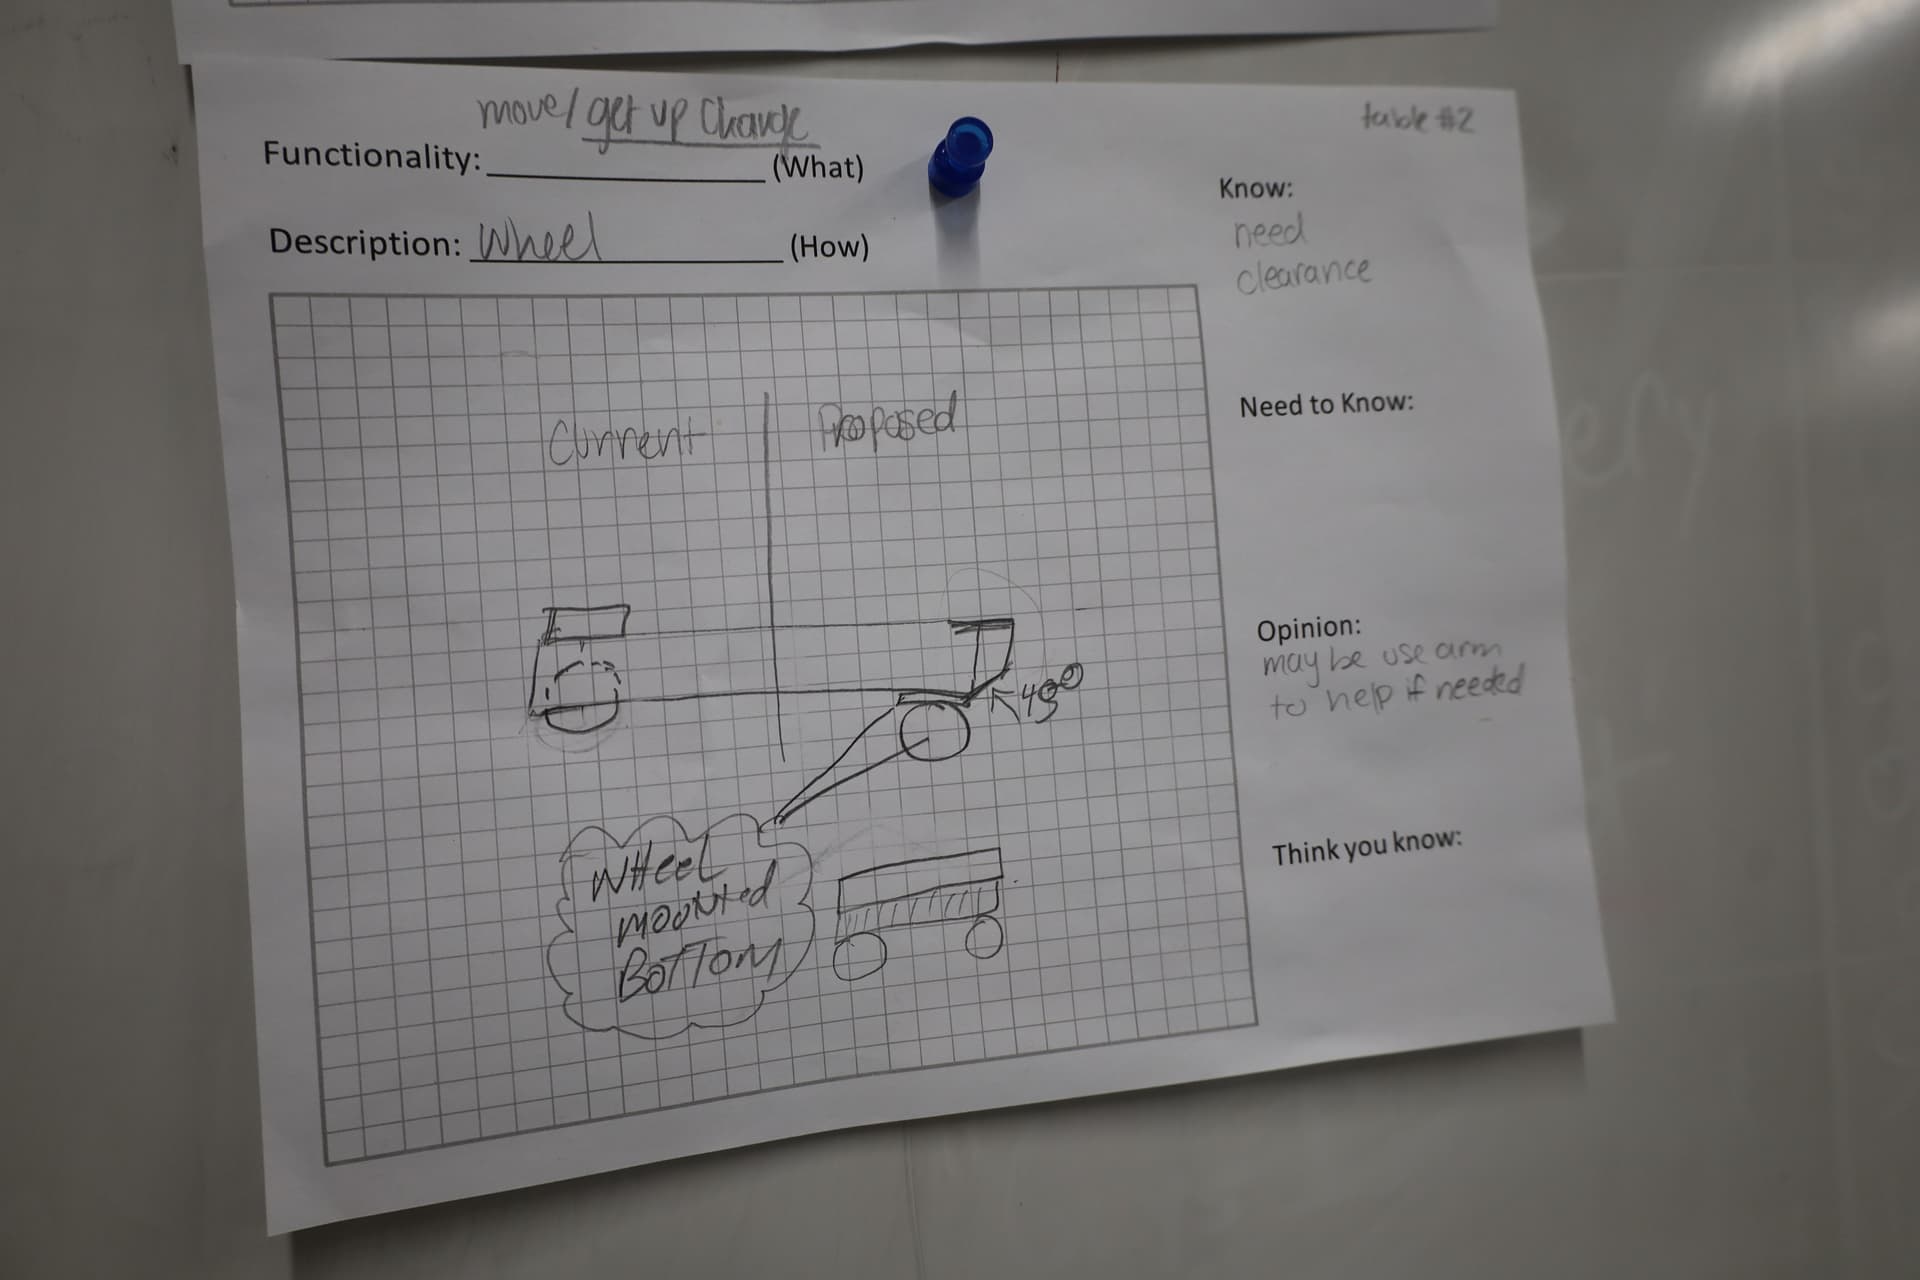 move/get up
table #2
Functionality: (What)
Description: Wheel (How)
Know:
need
clearance
Need to Know:
Current
Proposed
Opinion:
may be use arm
to help if needed
Think you know:
WHeel
mounted
BoTTom